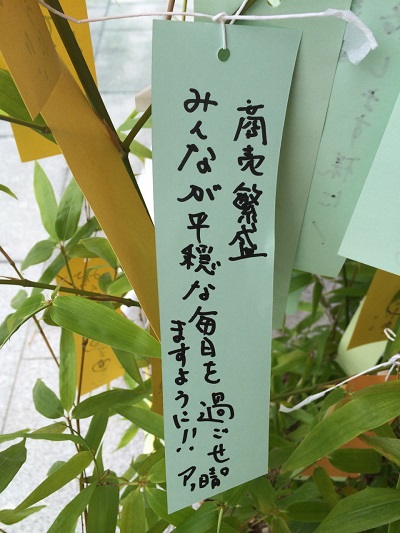 商売繁盛
みんなが平穏な毎日を過ごせ
ますように!!